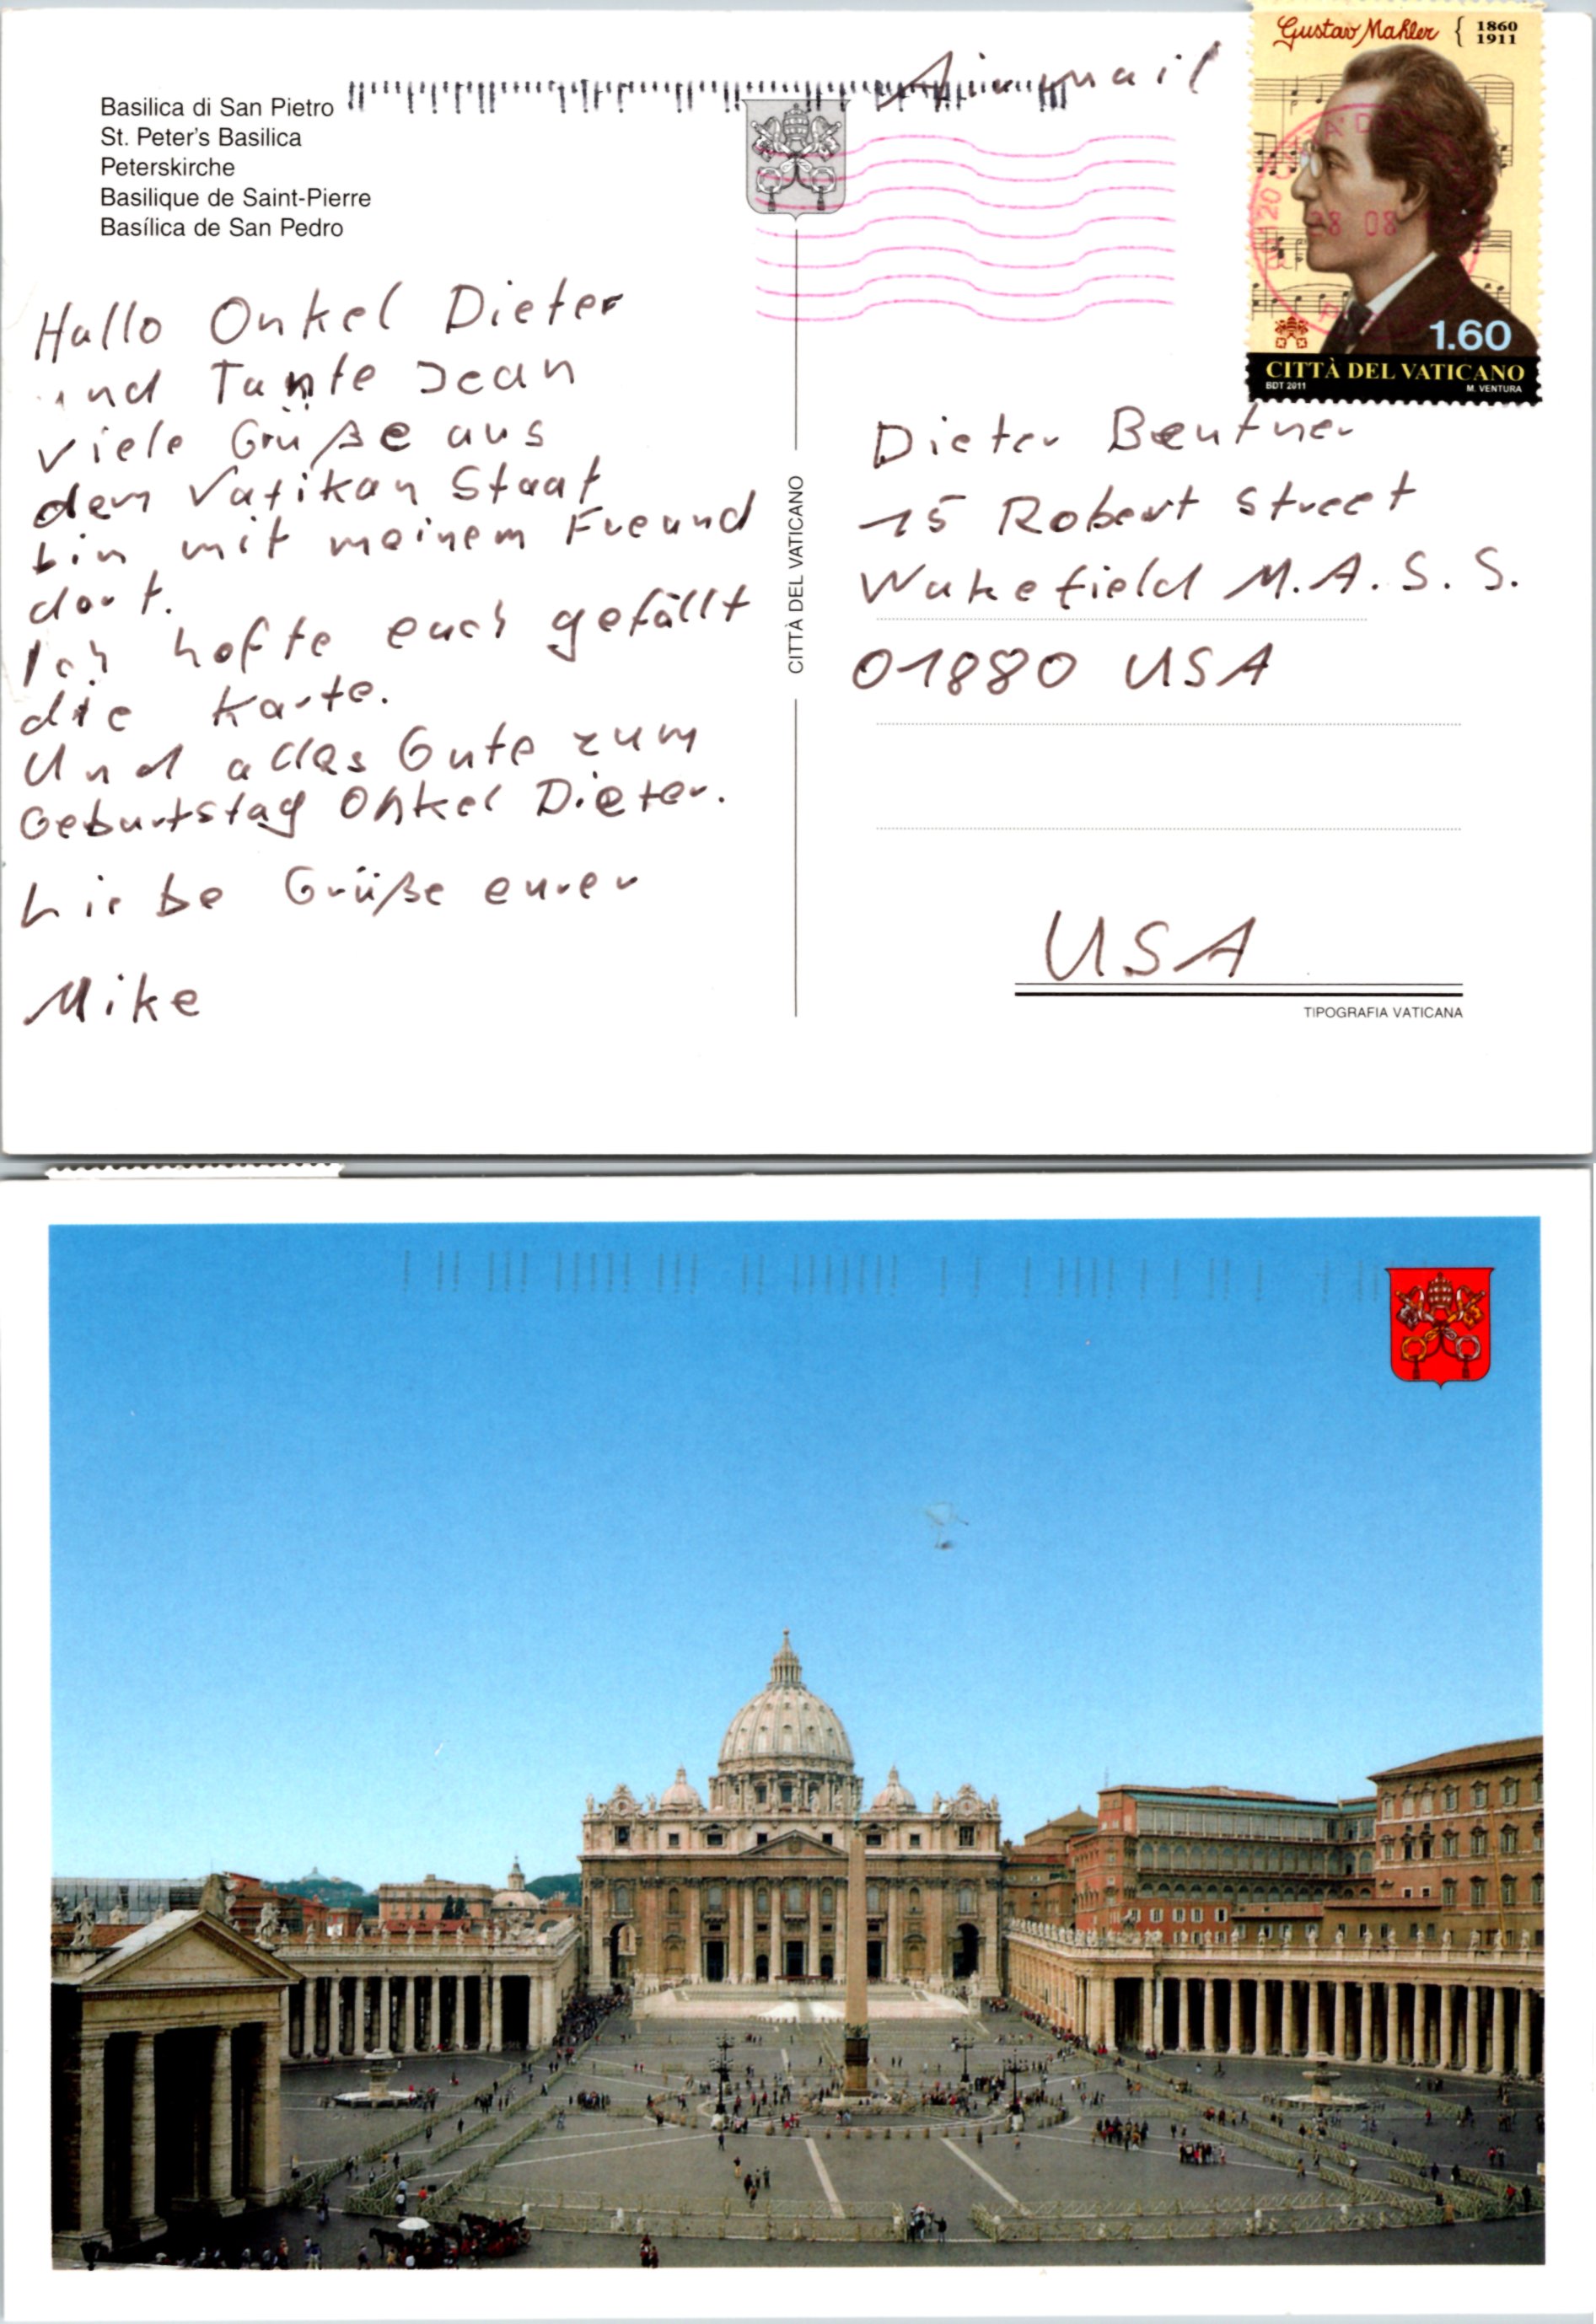 Basilica di San Pietro
St. Peter's Basilica
Peterskirche
Basilique de Saint-Pierre
Basílica de San Pedro
Airmail
Gustav Mahler { 1860 1911
1.60
CITTÀ DEL VATICANO
BDT 2011 M. VENTURA
08 08
Hallo Onkel Dieter
und Tante Jean
viele Grüße aus
dem Vatikan Staat
bin mit meinem Freund
dort.
Ich hofte euch gefällt
die Karte.
Und alles Gute zum
Geburtstag Onkel Dieter.
Liebe Grüße eurer
Mike
CITTÀ DEL VATICANO
Dieter Beutner
15 Robert Street
Wakefield M.A.S.S.
01880 USA
USA
TIPOGRAFIA VATICANA